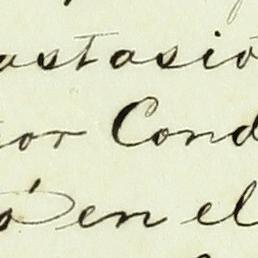 astasio
or Cond
ó en el